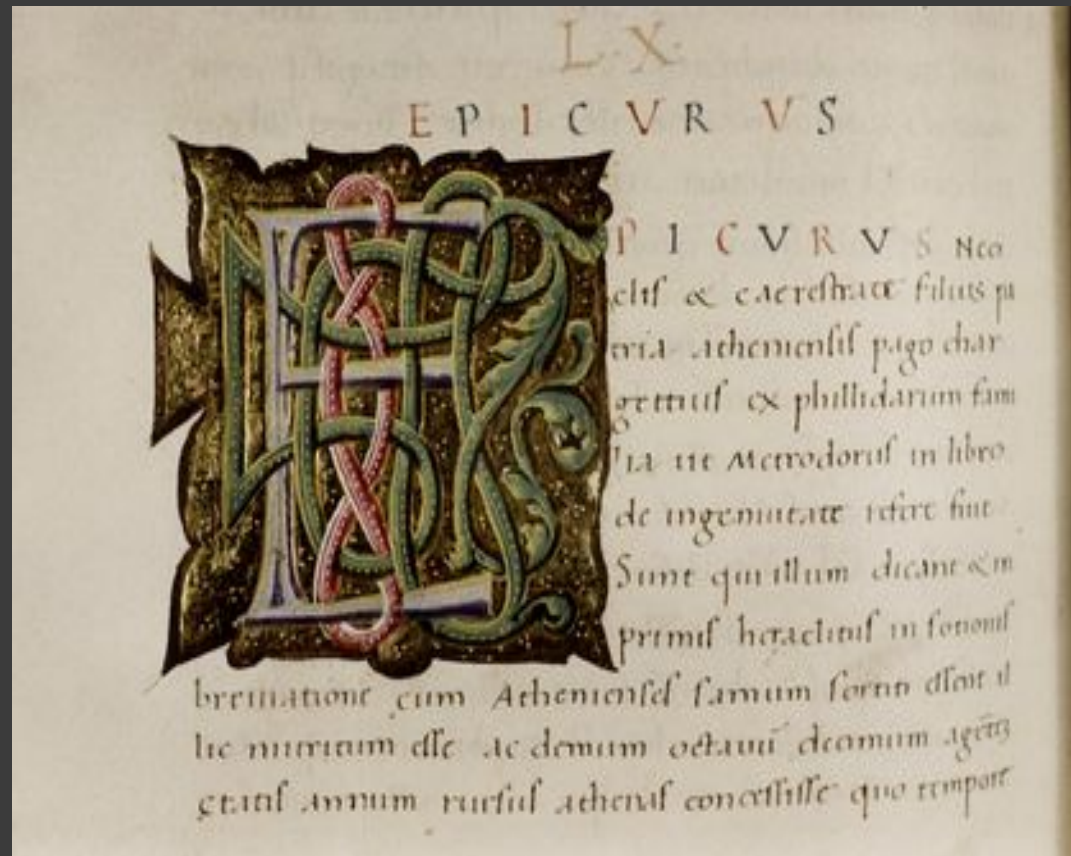 L · X ·
EPICVRVS
EPICVRVS Neo
clis & caerestrate filius pa
tria atheniensis pago char
gettius ex phillidarum fami
lia ut Metrodorus in libro
de ingenuitate refert fuit
Sunt qui illum dicant & in
primis heraclitus in sotionis
breuiatione cum Athenienses samum sortiti essent il
lic nutritum esse ac demum octauū decimum agētē
ętatis annum rursus athenas concessisse quo tempore